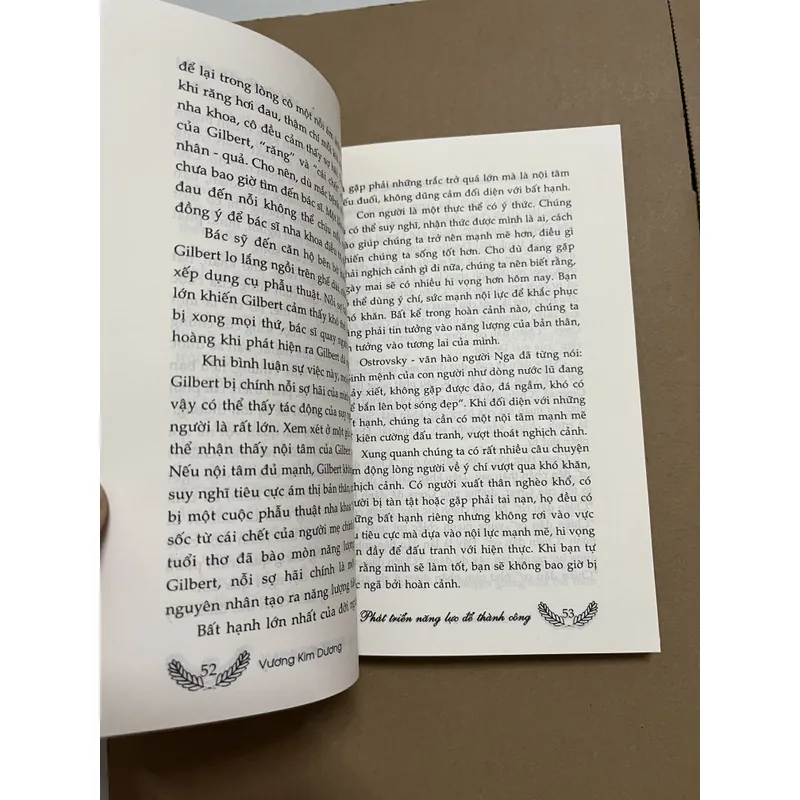 để lại trong lòng cô một nỗi ám
khi răng hơi đau, thậm chí mỗi
nha khoa, cô đều cảm thấy sợ
của Gilbert, "răng" và "cái chết"
nhân - quả. Cho nên, dù mắc bệnh
chưa bao giờ tìm đến bác sĩ. Một
đau đến nỗi không thể chịu
đồng ý để bác sĩ nha khoa điều
Bác sỹ đến căn hộ bên bờ
Gilbert lo lắng ngồi trên ghế dài,
xếp dụng cụ phẫu thuật. Nỗi sợ
lớn khiến Gilbert cảm thấy khó
bị xong mọi thứ, bác sĩ quay
hoàng khi phát hiện ra Gilbert đã
Khi bình luận sự việc này,
Gilbert bị chính nỗi sợ hãi của
vậy có thể thấy tác động của suy
người là rất lớn. Xem xét ở một
thể nhận thấy nội tâm của
Nếu nội tâm đủ mạnh, Gilbert
suy nghĩ tiêu cực ám thị bản thân,
bị một cuộc phẫu thuật nha khoa
sốc từ cái chết của người mẹ
tuổi thơ đã bào mòn năng lượng
Gilbert, nỗi sợ hãi chính là
nguyên nhân tạo ra năng lượng
Bất hạnh lớn nhất của đời
52 Vương Kim Dương
gặp phải những trắc trở quá lớn mà là nội tâm
yếu đuối, không dũng cảm đối diện với bất hạnh.
Con người là một thực thể có ý thức. Chúng
có thể suy nghĩ, nhận thức được mình là ai, cách
nào giúp chúng ta trở nên mạnh mẽ hơn, điều gì
khiến chúng ta sống tốt hơn. Cho dù đang gặp
phải nghịch cảnh gì đi nữa, chúng ta nên biết rằng,
ngày mai sẽ có nhiều hi vọng hơn hôm nay. Bạn
có thể dùng ý chí, sức mạnh nội lực để khắc phục
khó khăn. Bất kể trong hoàn cảnh nào, chúng ta
cũng phải tin tưởng vào năng lượng của bản thân,
tin tưởng vào tương lai của mình.
Ostrovsky - văn hào người Nga đã từng nói:
sinh mệnh của con người như dòng nước lũ đang
chảy xiết, không gặp được đảo, đá ngầm, khó có
thể bắn lên bọt sóng đẹp". Khi đối diện với những
bất hạnh, chúng ta cần có một nội tâm mạnh mẽ
kiên cường đấu tranh, vượt thoát nghịch cảnh.
Xung quanh chúng ta có rất nhiều câu chuyện
cảm động lòng người về ý chí vượt qua khó khăn,
nghịch cảnh. Có người xuất thân nghèo khổ, có
người bị tàn tật hoặc gặp phải tai nạn, họ đều có
những bất hạnh riêng nhưng không rơi vào vực
tiêu cực mà dựa vào nội lực mạnh mẽ, hi vọng
tràn đầy để đấu tranh với hiện thực. Khi bạn tự
rằng mình sẽ làm tốt, bạn sẽ không bao giờ bị
ngã bởi hoàn cảnh.
Phát triển năng lực để thành công 53